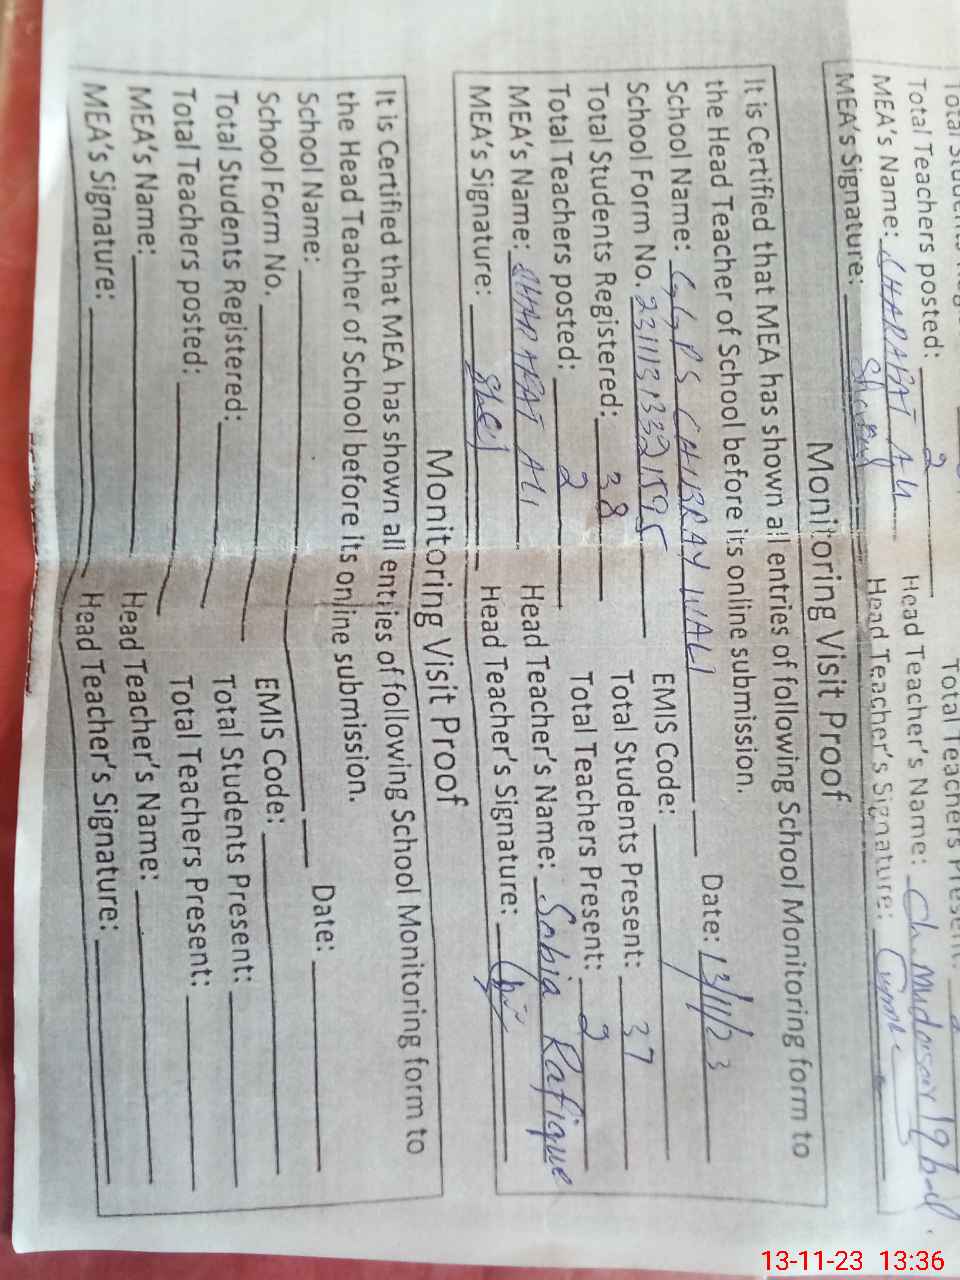 Total Teachers posted: 2
MEA's Name: SHARAFAT Ali Head Teacher's Name: Ch Mudassar Iqbal
MEA's Signature: Head Teacher's Signature:
Monitoring Visit Proof
It is Certified that MEA has shown all entries of following School Monitoring form to
the Head Teacher of School before its online submission.
School Name: GGPS CHIBRAY WALI Date: 13/11/23
School Form No. EMIS Code:
Total Students Registered: 38 Total Students Present: 37
Total Teachers posted: 2 Total Teachers Present: 2
MEA's Name: SHARAFAT ALI Head Teacher's Name: Sobia Rafique
MEA's Signature: Head Teacher's Signature:
Monitoring Visit Proof
It is Certified that MEA has shown all entries of following School Monitoring form to
the Head Teacher of School before its online submission.
School Name: Date:
School Form No. EMIS Code:
Total Students Registered: Total Students Present:
Total Teachers posted: Total Teachers Present:
MEA's Name: Head Teacher's Name:
MEA's Signature: Head Teacher's Signature:
13-11-23 13:36